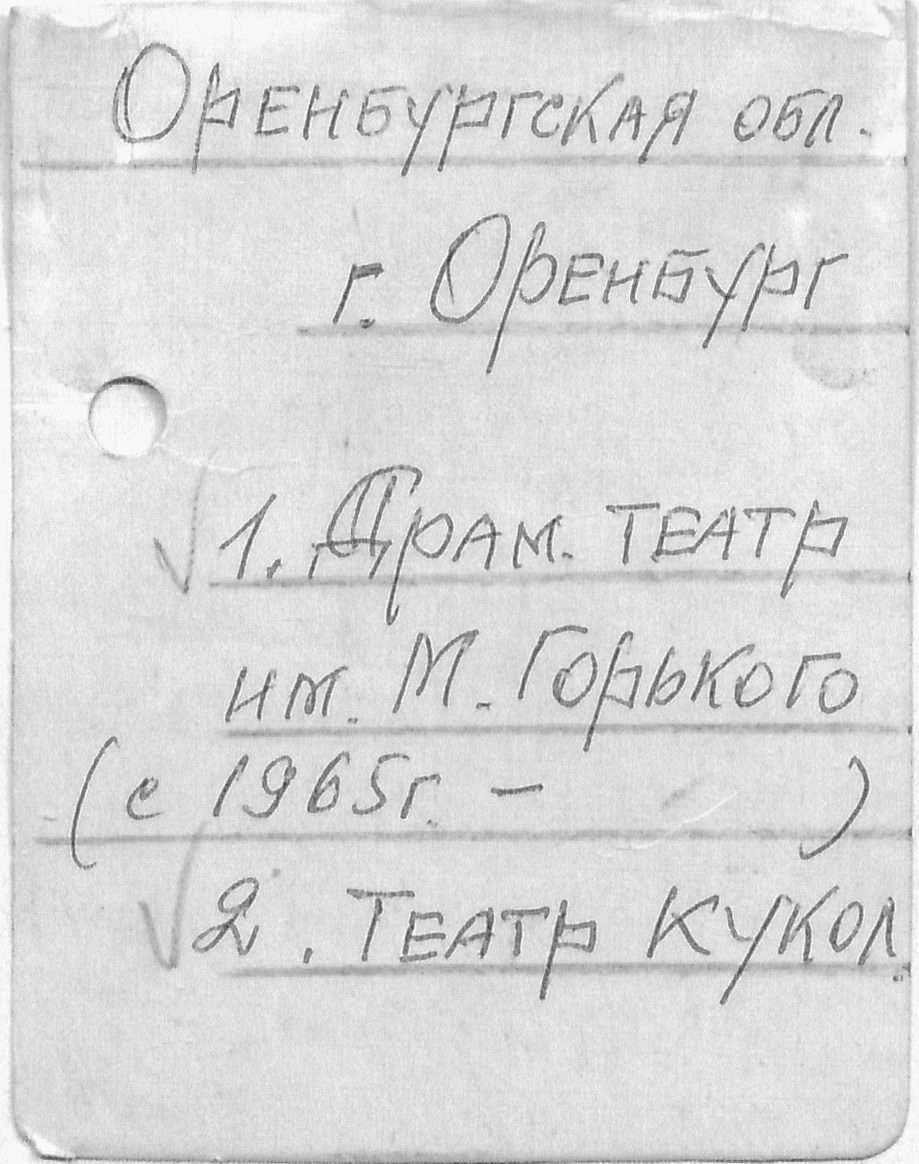 Оренбургская обл.
г. Оренбург
1. Драм. театр
им. М. Горького
(с 1965г. – )
2. Театр кукол